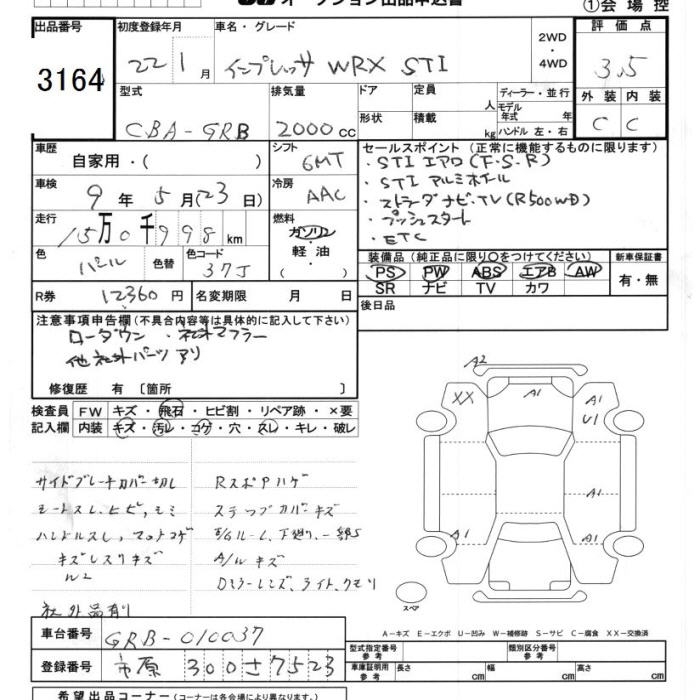 オークション出品申込書
①会場控
出品番号
3164
初度登録年月
22 1月
車名・グレード
インプレッサ WRX STI
2WD
・
4WD
評価点
3.5
型式
CBA-GRB
排気量
2000cc
ドア
形状
定員 人
積載 kg
ディーラー・並行
モデル年式 年
ハンドル 左・右
外装 内装
C C
車歴
自家用・( )
シフト
6MT
車検
9年5月(23日)
冷房
AAC
走行
15万0千998km
燃料
ガソリン
軽油
( )
色
パール
色替
色コード
37J
R券 12360円
名変期限 月 日
セールスポイント(正常に機能するものに限ります)
・STI エアロ(F・S・R)
・STI アルミホイール
・ストラーダナビ・TV(R500WD)
・プッシュスタート
・ETC
装備品(純正品に限り○をつけてください)
PS PW ABS エアB AW
SR ナビ TV カワ
新車保証書
有・無
後日品
注意事項申告欄(不具合内容等は具体的に記入して下さい)
ローダウン・社外マフラー
他社外パーツアリ
修復歴 有 [箇所 ]
検査員記入欄
FW キズ・飛石・ヒビ割・リペア跡・×要
内装 キズ・汚レ・コゲ・穴・スレ・キレ・破レ
サイドブレーキカバー切レ
シートスレ、ヒビ、シミ
ハンドルスレ、マットコゲ
キズレスリキズ
W2
社外品有り
RスポAハゲ
ステップカバーキズ
E/Gルーム、下廻り、一部S
A/Wキズ
Dミラーレンズ、ライト、クモリ
A2
XX
A1
A1
U1
A1
A1
A1
スペア
A-キズ E-エクボ U-凹み W-補修跡 S-サビ C-腐食 XX-交換済
車台番号 GRB-010037
登録番号 市原 300 さ 7523
型式指定番号 参考
類別区分番号 参考
車庫証明用 参考 長さ cm 幅 cm 高さ cm
希望出品コーナー(コーナーは各会場により異なります。)